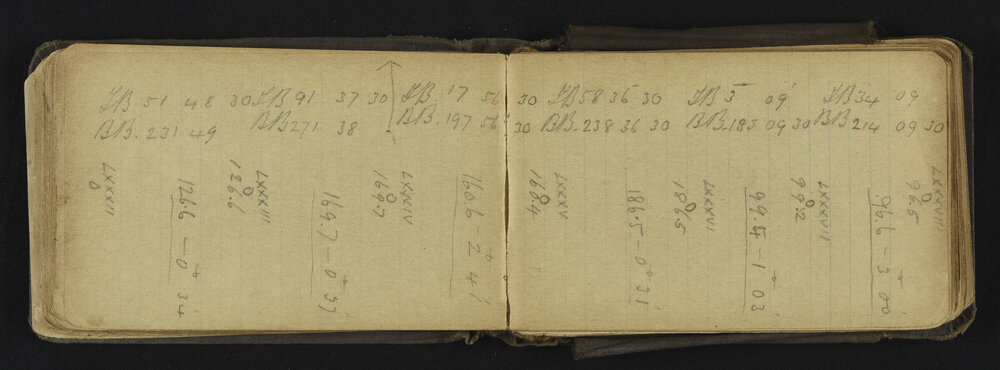 FB 51 48 30 FB 91 37 30 FB 17 56 30 FB 58 36 30 FB 5 09' FB 34 09
BB. 231 49 BB 271 38 BB. 197 56 30 BB. 238 36 30 BB. 185 09 30 BB 214 09 30
LXXXII
0
126.6 - 0 34
LXXXIII
0
126.6
169.7 - 0 37
LXXXIV
0
169.7
160.6 - 2 41
LXXXV
0
160.4
186.5 - 0 31
LXXXVI
0
186.5
99.4 - 1 03
LXXXVII
0
99.2
96.6 - 3 00
LXXXVIII
0
96.5